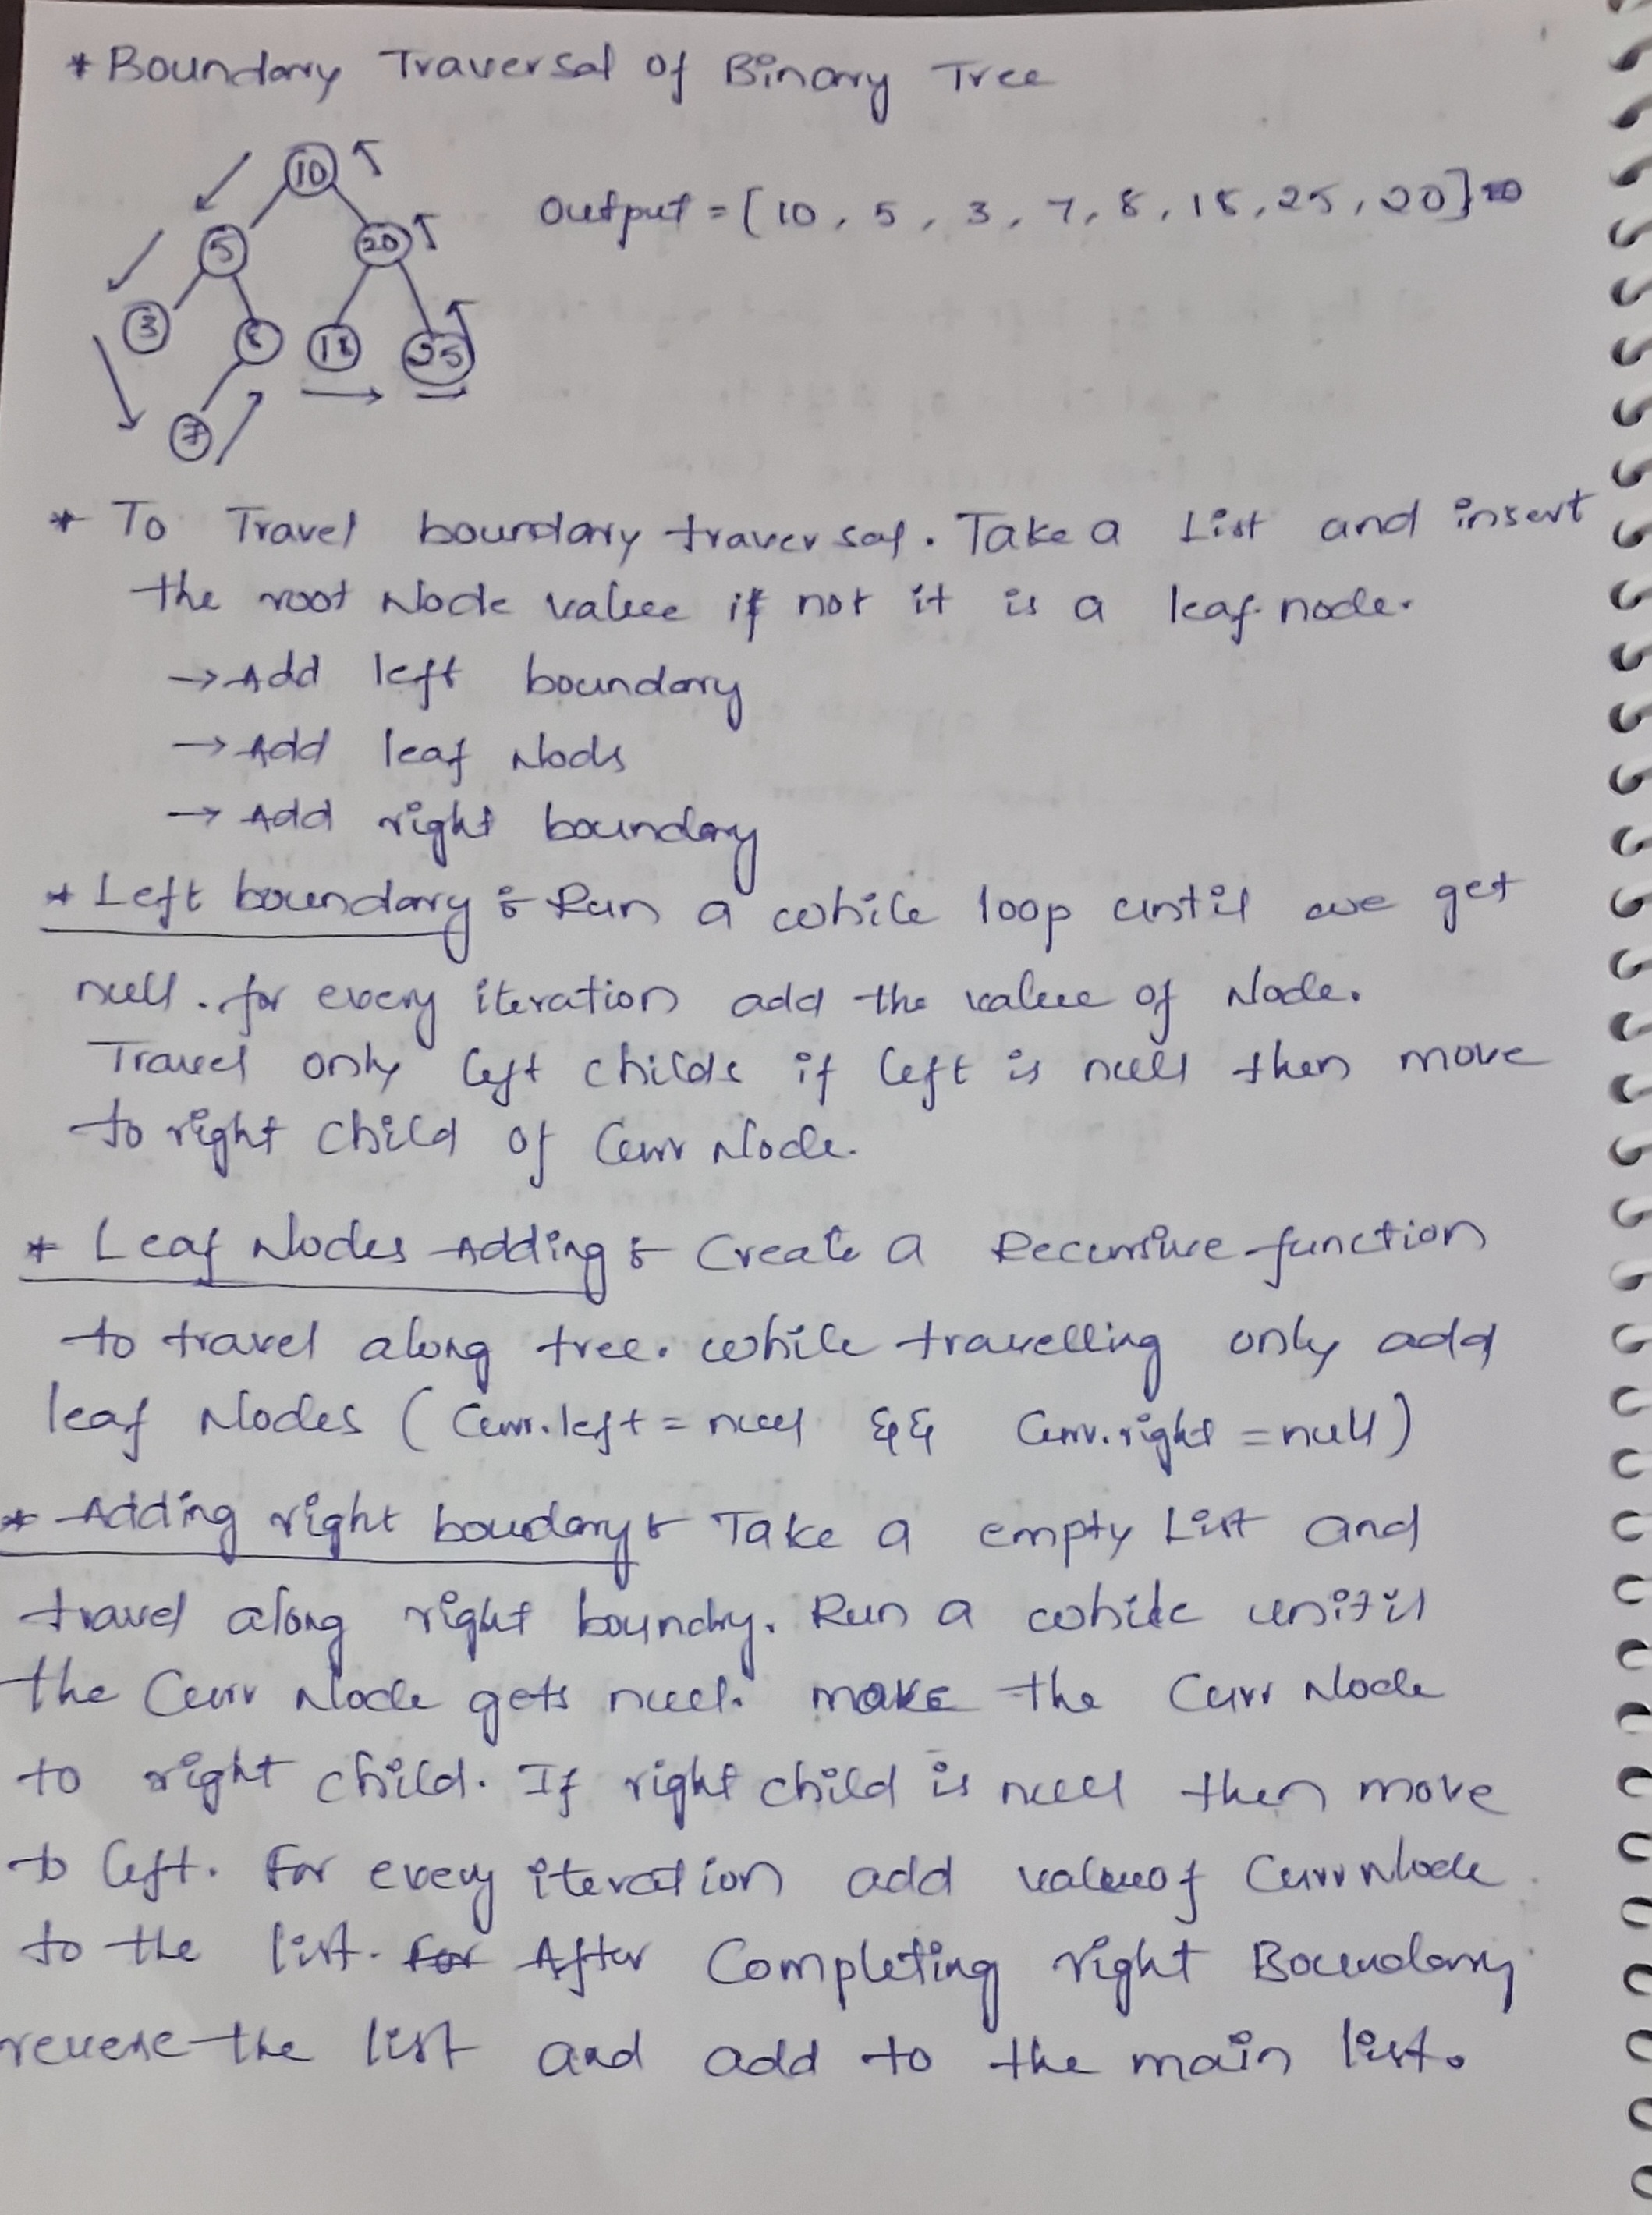 * Boundary Traversal of Binary Tree
10
Output = [10, 5, 3, 7, 8, 18, 25, 20]
5 20
3 8 18 25
7
* To Travel boundary traversal. Take a List and insert
the root Node value if not it is a leaf node.
→ Add left boundary
→ Add leaf Nods
→ Add right boundary
* Left boundary :- Run a while loop until we get
null. for every iteration add the value of Node.
Travel only left childs if left is null then move
to right child of Curr Node.
* Leaf Nodes Adding :- Create a Recursive function
to travel along tree. while travelling only add
leaf Nodes (Curr.left = null && Curr.right = null)
* Adding right boudary :- Take a empty List and
travel along right boundry. Run a while unitil
the Curr Node gets null. make the Curr Node
to right child. If right child is null then move
to left. For every iteration add value of Curr Node
to the list. For After Completing right Boundary
reverse the list and add to the main list.